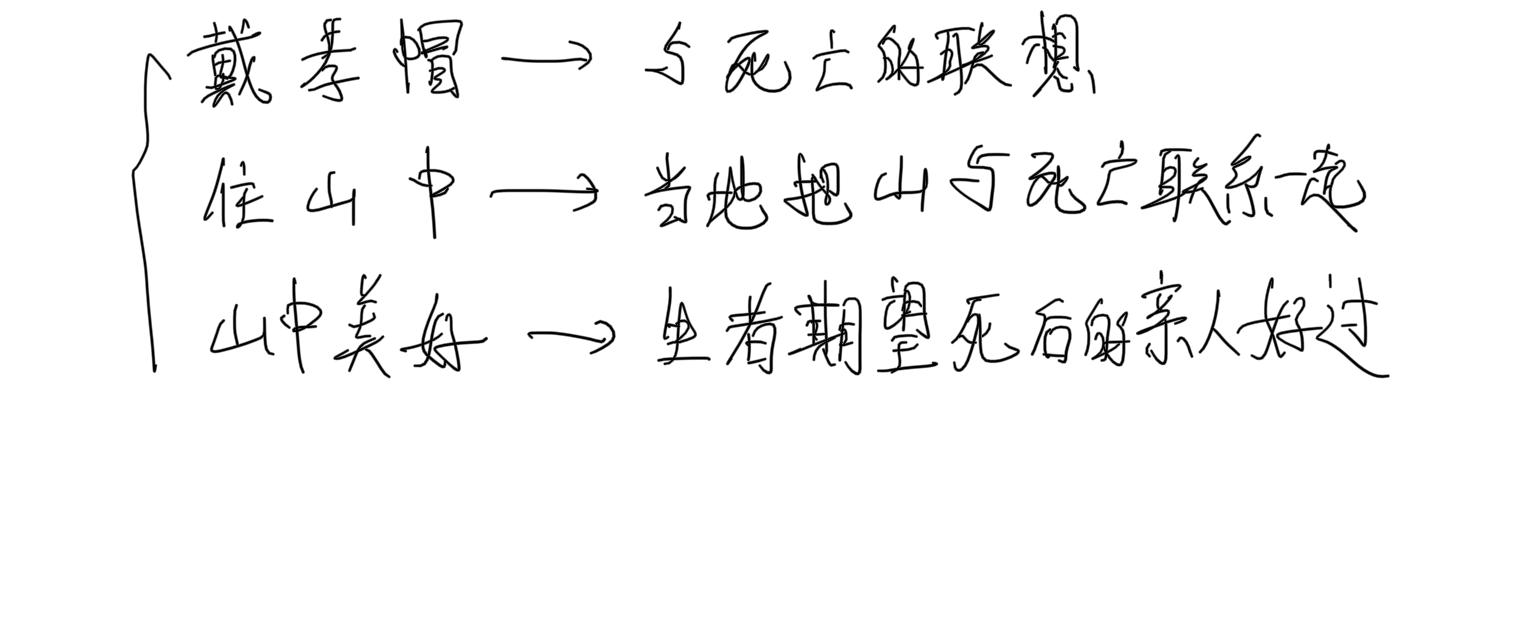 戴孝帽 → 与死亡的联想
住山中 → 当地把山与死亡联系一起
山中美好 → 生者期望死后的亲人好过